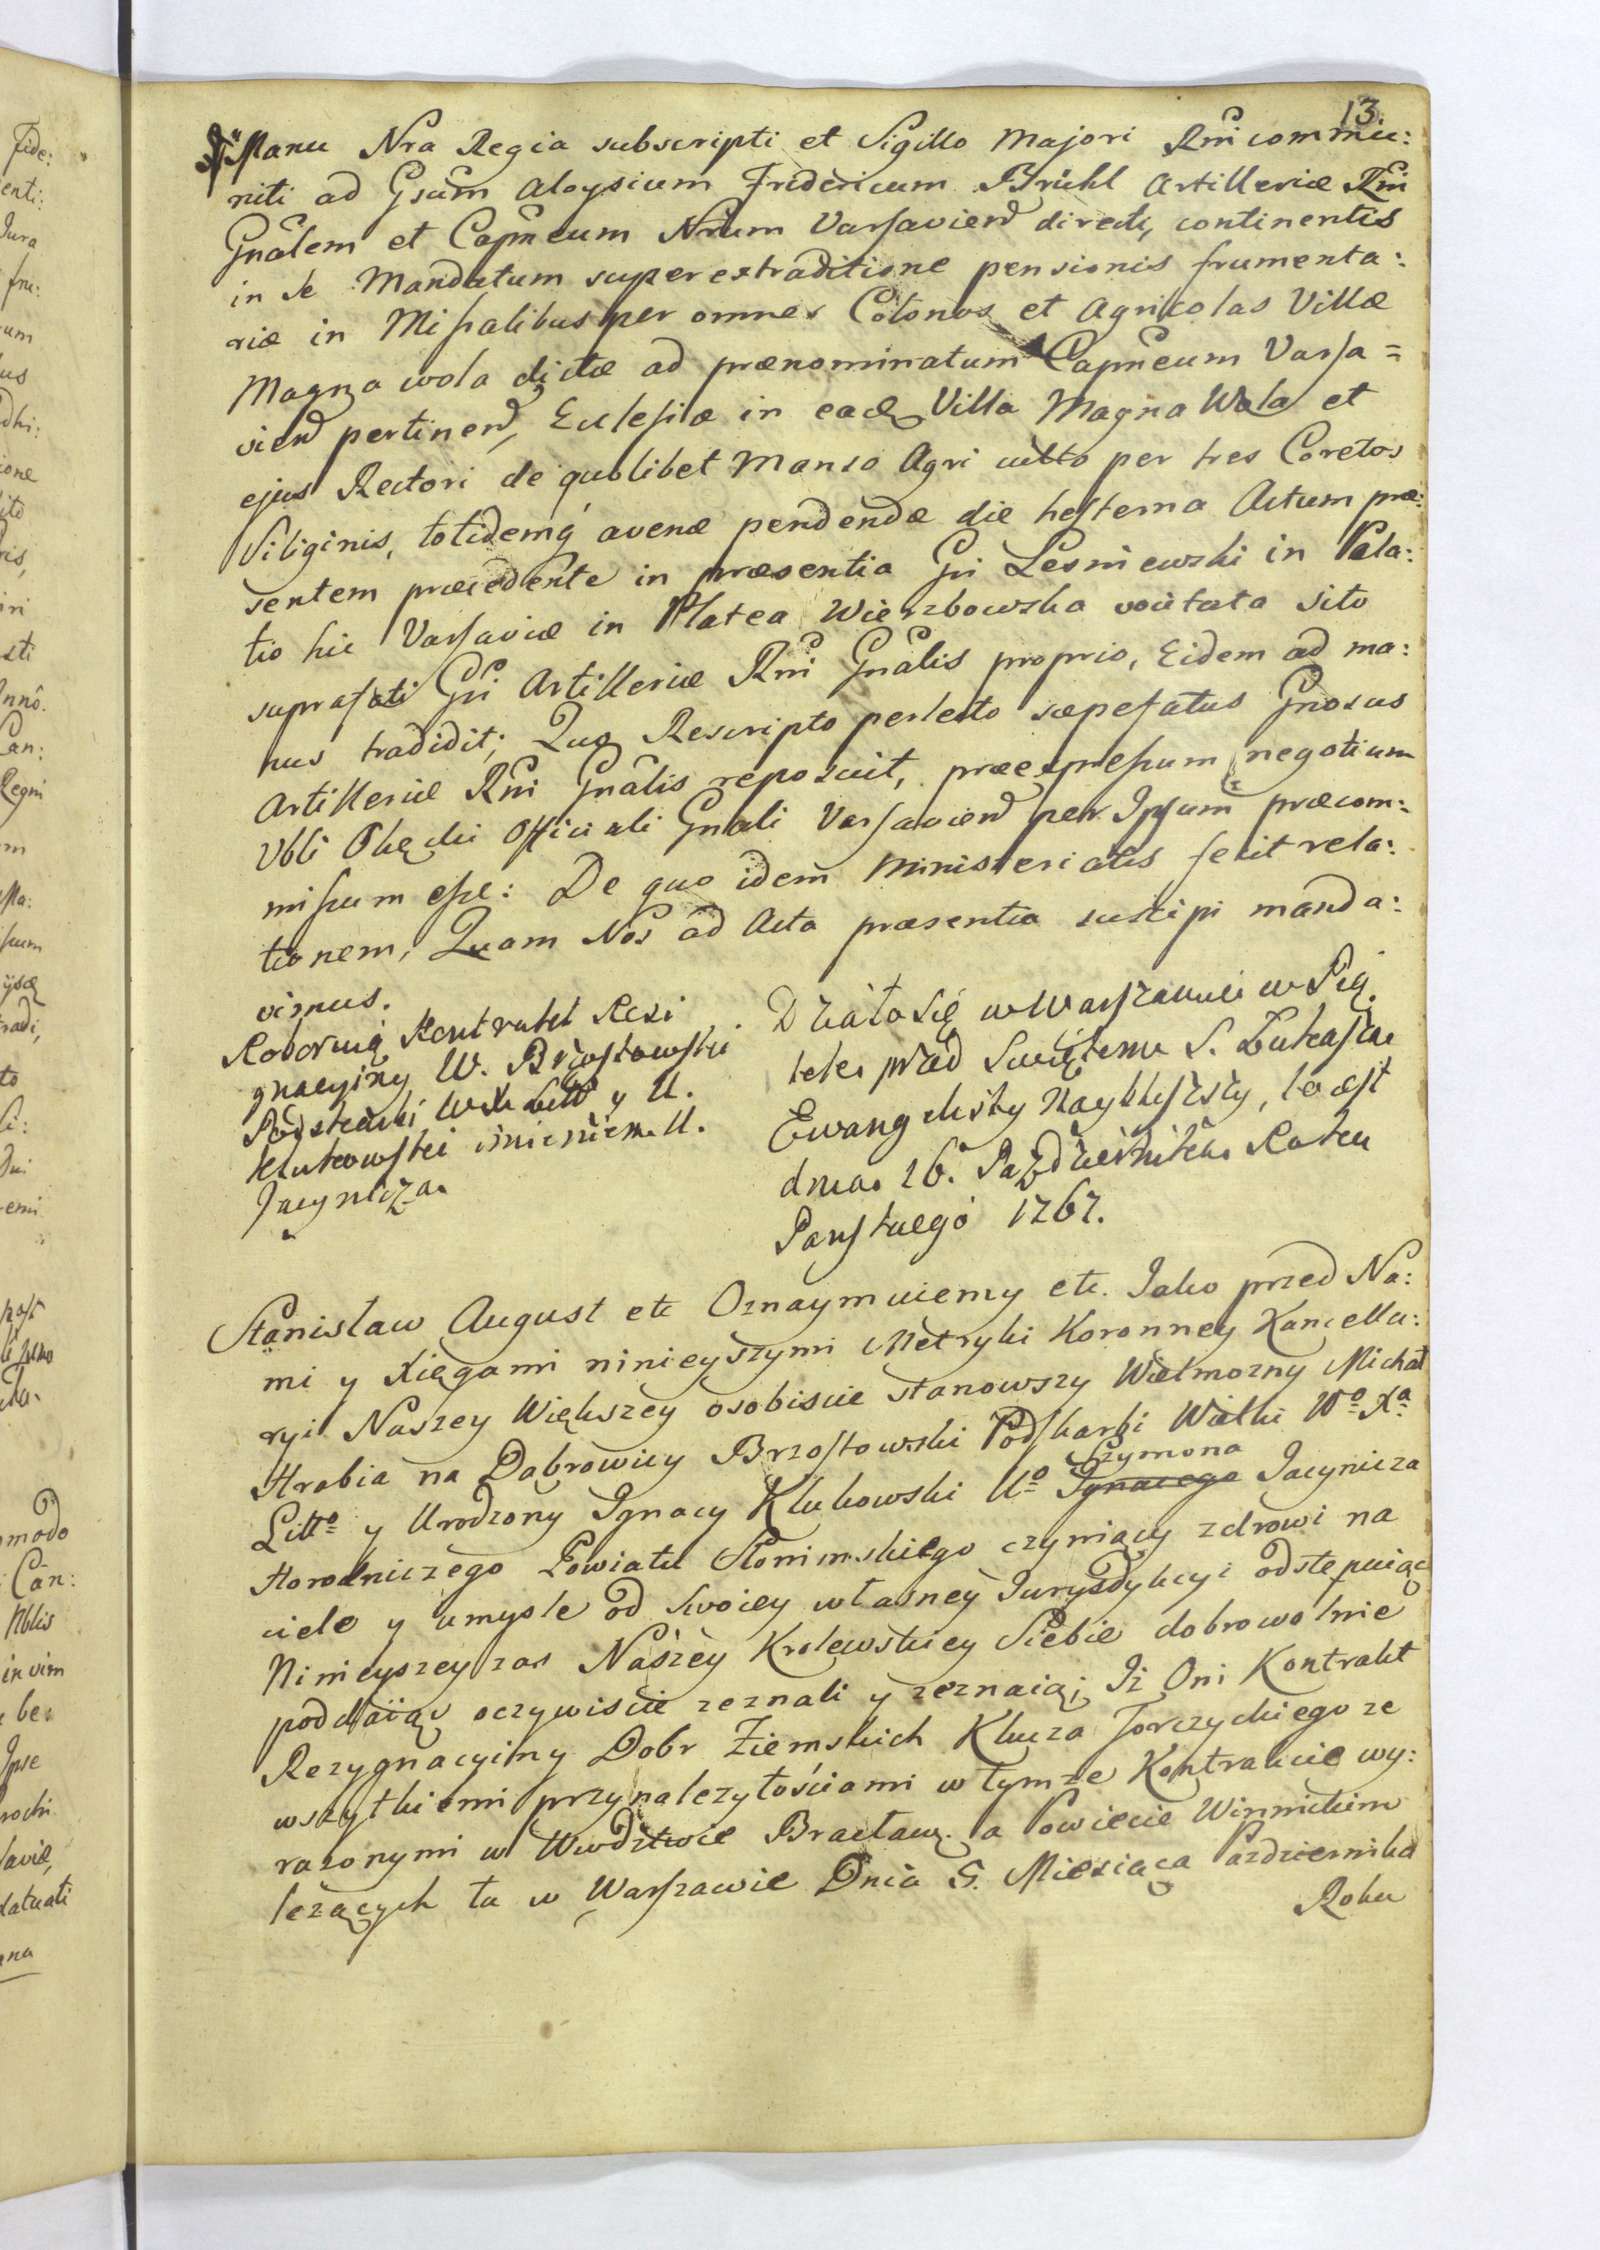 13.
Manu Nra Regia subscripti et Sigillo Majori Rni commu:
niti ad Gsum Aloysium Fridericum Brühl Artilleriæ Rni
Gnalem et Capneum Nrum Varsavien directi, continentis
in se Mandatum super extraditione pensionis frumenta:
riæ in Missalibus per omnes Colonos et Agricolas Villæ
Magna wola dictæ ad prænominatum Capneum Varsa=
vien pertinen, Ecclesiæ in eadq Villa Magna Wola et
ejus Rectori de quolibet Manso Agri culto per tres Coretos
Siliginis, totidemq avenæ pendendæ die hesterna Actum præ:
sentem præcedente in præsentia Gsi Lesniewski in Pala:
tio hic Varsaviæ in Platea Wierzbowska vocitata sito
suprafati Gsi Artilleriæ Rni Gnalis proprio, Eidem ad ma:
nus tradidit; Quo Rescripto perlecto sæpefatus Gnosus
Artilleriæ Rni Gnalis reposuit, præexpressum negotium
Nbli Officiali Gnali Varsavien per Ipsum præcom:
missum esse: De quo idem Ministerialis fecit rela:
tionem, Quam Nos ad Acta præsentia suscipi manda:
vimus.
Roborują Kontrakt Rezi
gnacyiny W. Brzostowski
Podskarbi WXLitt y U.
Klukowski imieniem U.
Jacynicza
Działo się w Warszawie w Pią
tek przed Swiętem S. Łukasza
Ewangelisty Naybliższy, to jest
dnia 16. Października Roku
Panskiego 1767.
Stanisław August etc Oznaymuiemy etc. Jako przed Na:
mi y Xięgami ninieyszymi Metryki Koronney Kancella:
ryi Naszey Większey osobiscie stanowszy Wielmozny Michał
Hrabia na Dąbrowicy Brzostowski Podskarbi Wielki Wo Xa
Litto y Urodzony Ignacy Klukowski Uo Ignacego Szymona Jacynicza
Horodniczego Powiatu Słonimskiego czyniący zdrowi na
ciele y umysle od swoiey własney Jurysdykcyi odstępuiąc
Ninieyszey zas Naszey Krolewskiey Siebie dobrowolnie
poddaiąc oczywiscie zeznali y zeznaią; Iż Oni Kontrakt
Rezygnacyiny Dobr Ziemskich Klucza Torczyckiego ze
wszytkiemi przynalezytościami w tymze Kontrakcie wy:
razonymi w Wwdztwie Bractaw. a Powiecie Winnickim
lezących tu w Warszawie Dnia 5. Miesiąca Pazdziernika
Roku